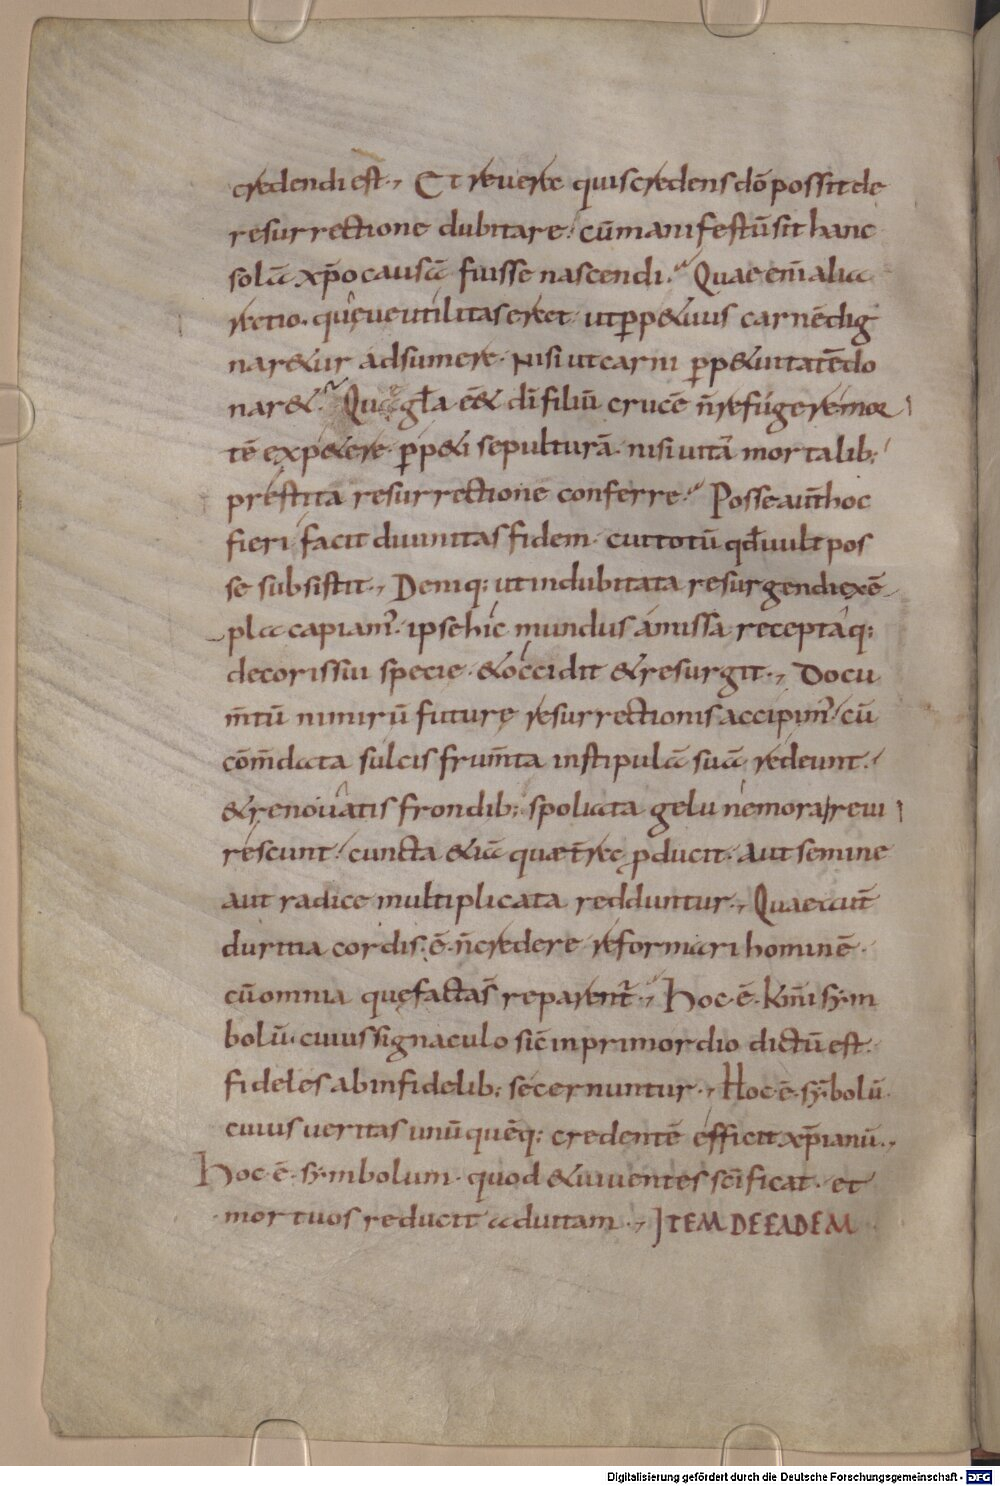 credendi est., Et reuere quis credens dō possit de
resurrectione dubitare. cū manifestū sit hanc
solā xp̄o causā fuisse nascendi. Quae eni̅ alia
rectio. quęue utilitas eret ut ꝑp&uus carnē dig
nar&ur adsumere. Nisi ut carni ꝑp&uitatē do
nar&. Quę gl̄a e̅& dī filiū crucē n̄ refugere mor
tē exp&ere ꝑp&i sepulturā. nisi uitā mortalib;
prestita resurrectione conferre. Posse aut̄ hoc
fieri facit diuinitas fidem. cui totū qd̄ uult pos
se subsistit., Deniq; ut indubitata resurgendi exē
pla capiam̄. ipse hic mundus amissa receptaq;
decorissiui specie. &occidit &resurgit., Docu
m̄tū nimirū futurę resurrectionis accipim̄. cū
cōm̄data sulcis frum̄ta in stipulā suā redeunt.
&renouatis frondib; spoliata gelu nemora reui
rescunt. cuncta &iā quae t̄rec ꝓducit. aut semine
aut radice multiplicata redduntur., Quae aut̄
duritia cordis. ē. n̄ credere reformari hominē.
cū omnia quę facta s̄ reparent̄., Hoc. ē. km̄i sym
bolū. cuius signaculo sic̄ in primordio dictū est.
fideles ab infidelib; secernuntur., Hoc. ē. sȳbolū
cuius ueritas unū quēq; credentē efficit xp̄ianū.,
Hoc. ē. symbolum. quod &uiuentes sc̄ificat. et
mortuos reducit ad uitam., ITEM DE EADEM
Digitalisierung gefördert durch die Deutsche Forschungsgemeinschaft - DFG